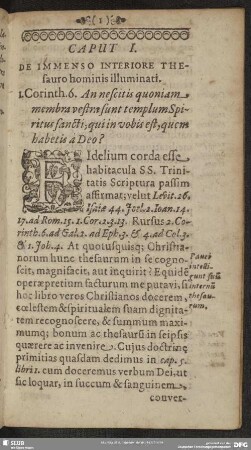 (1)
CAPUT I.
DE IMMENSO INTERIORE THE-
sauro hominis illuminati.
1. Corinth. 6. An nescitis quoniam
membra vestra sunt templum Spi-
ritus sancti, qui in vobis est, quem
habetis à Deo?
FIdelium corda esse
habitacula SS. Trini-
tatis Scriptura passim
affirmat; velut Levit. 26.
Isaiæ 44. Joël. 2. Ioan. 14.
17. ad Rom. 15. 1. Cor. 2. 13. Rursus 2. Co-
rinth. 6. ad Gal. 2. ad Eph. 3. & 4. ad Col. 3.
& 1. Joh. 4. At quotusquisq; Christia-
norum hunc thesaurum in se cognos-
cit, magnifacit, aut inquirit? Equidē
operæpretium facturum me putavi, si
hoc libro veros Christianos docerem
cœlestem & spiritualem suam dignita-
tem recognoscere, & summum maxi-
mumq; bonum ac thesaurū in seipsis
quærere ac invenire. Cujus doctrinæ
primitias quasdam dedimus in cap. 5.
libri 1. cum doceremus verbum Dei, ut
sic loquar, in succum & sanguinem
conver-
Pauci
intelli-
gunt suū
internū
thesau-
rum.
SLUB
DFG